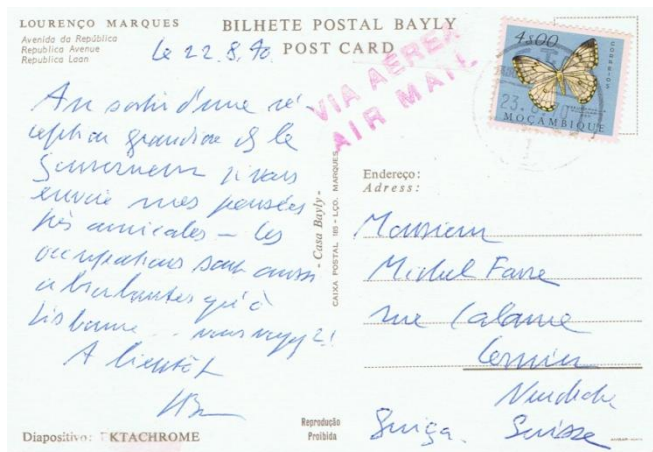 LOURENÇO MARQUES
Avenida da República
Republica Avenue
Republica Laan
BILHETE POSTAL BAYLY
POST CARD
Le 22.8.70.
VIA AÉREA
AIR MAIL
4$00
CORREIOS
23.
MOÇAMBIQUE
Au sortir d'une ré
ception grandiose ch le
Gouverneur je vous
envoie mes pensées
très amicales – les
occupations sont aussi
absorbantes qu'à
Lisbonne – vous voyez!
A bientôt
- Casa Bayly -
CAIXA POSTAL 185 - LÇO. MARQUES
Endereço:
Adress:
Monsieur
Michel Favre
rue Calame
Cernier
Suiça. Suisse
Diapositivo: EKTACHROME
Reprodução
Proibida